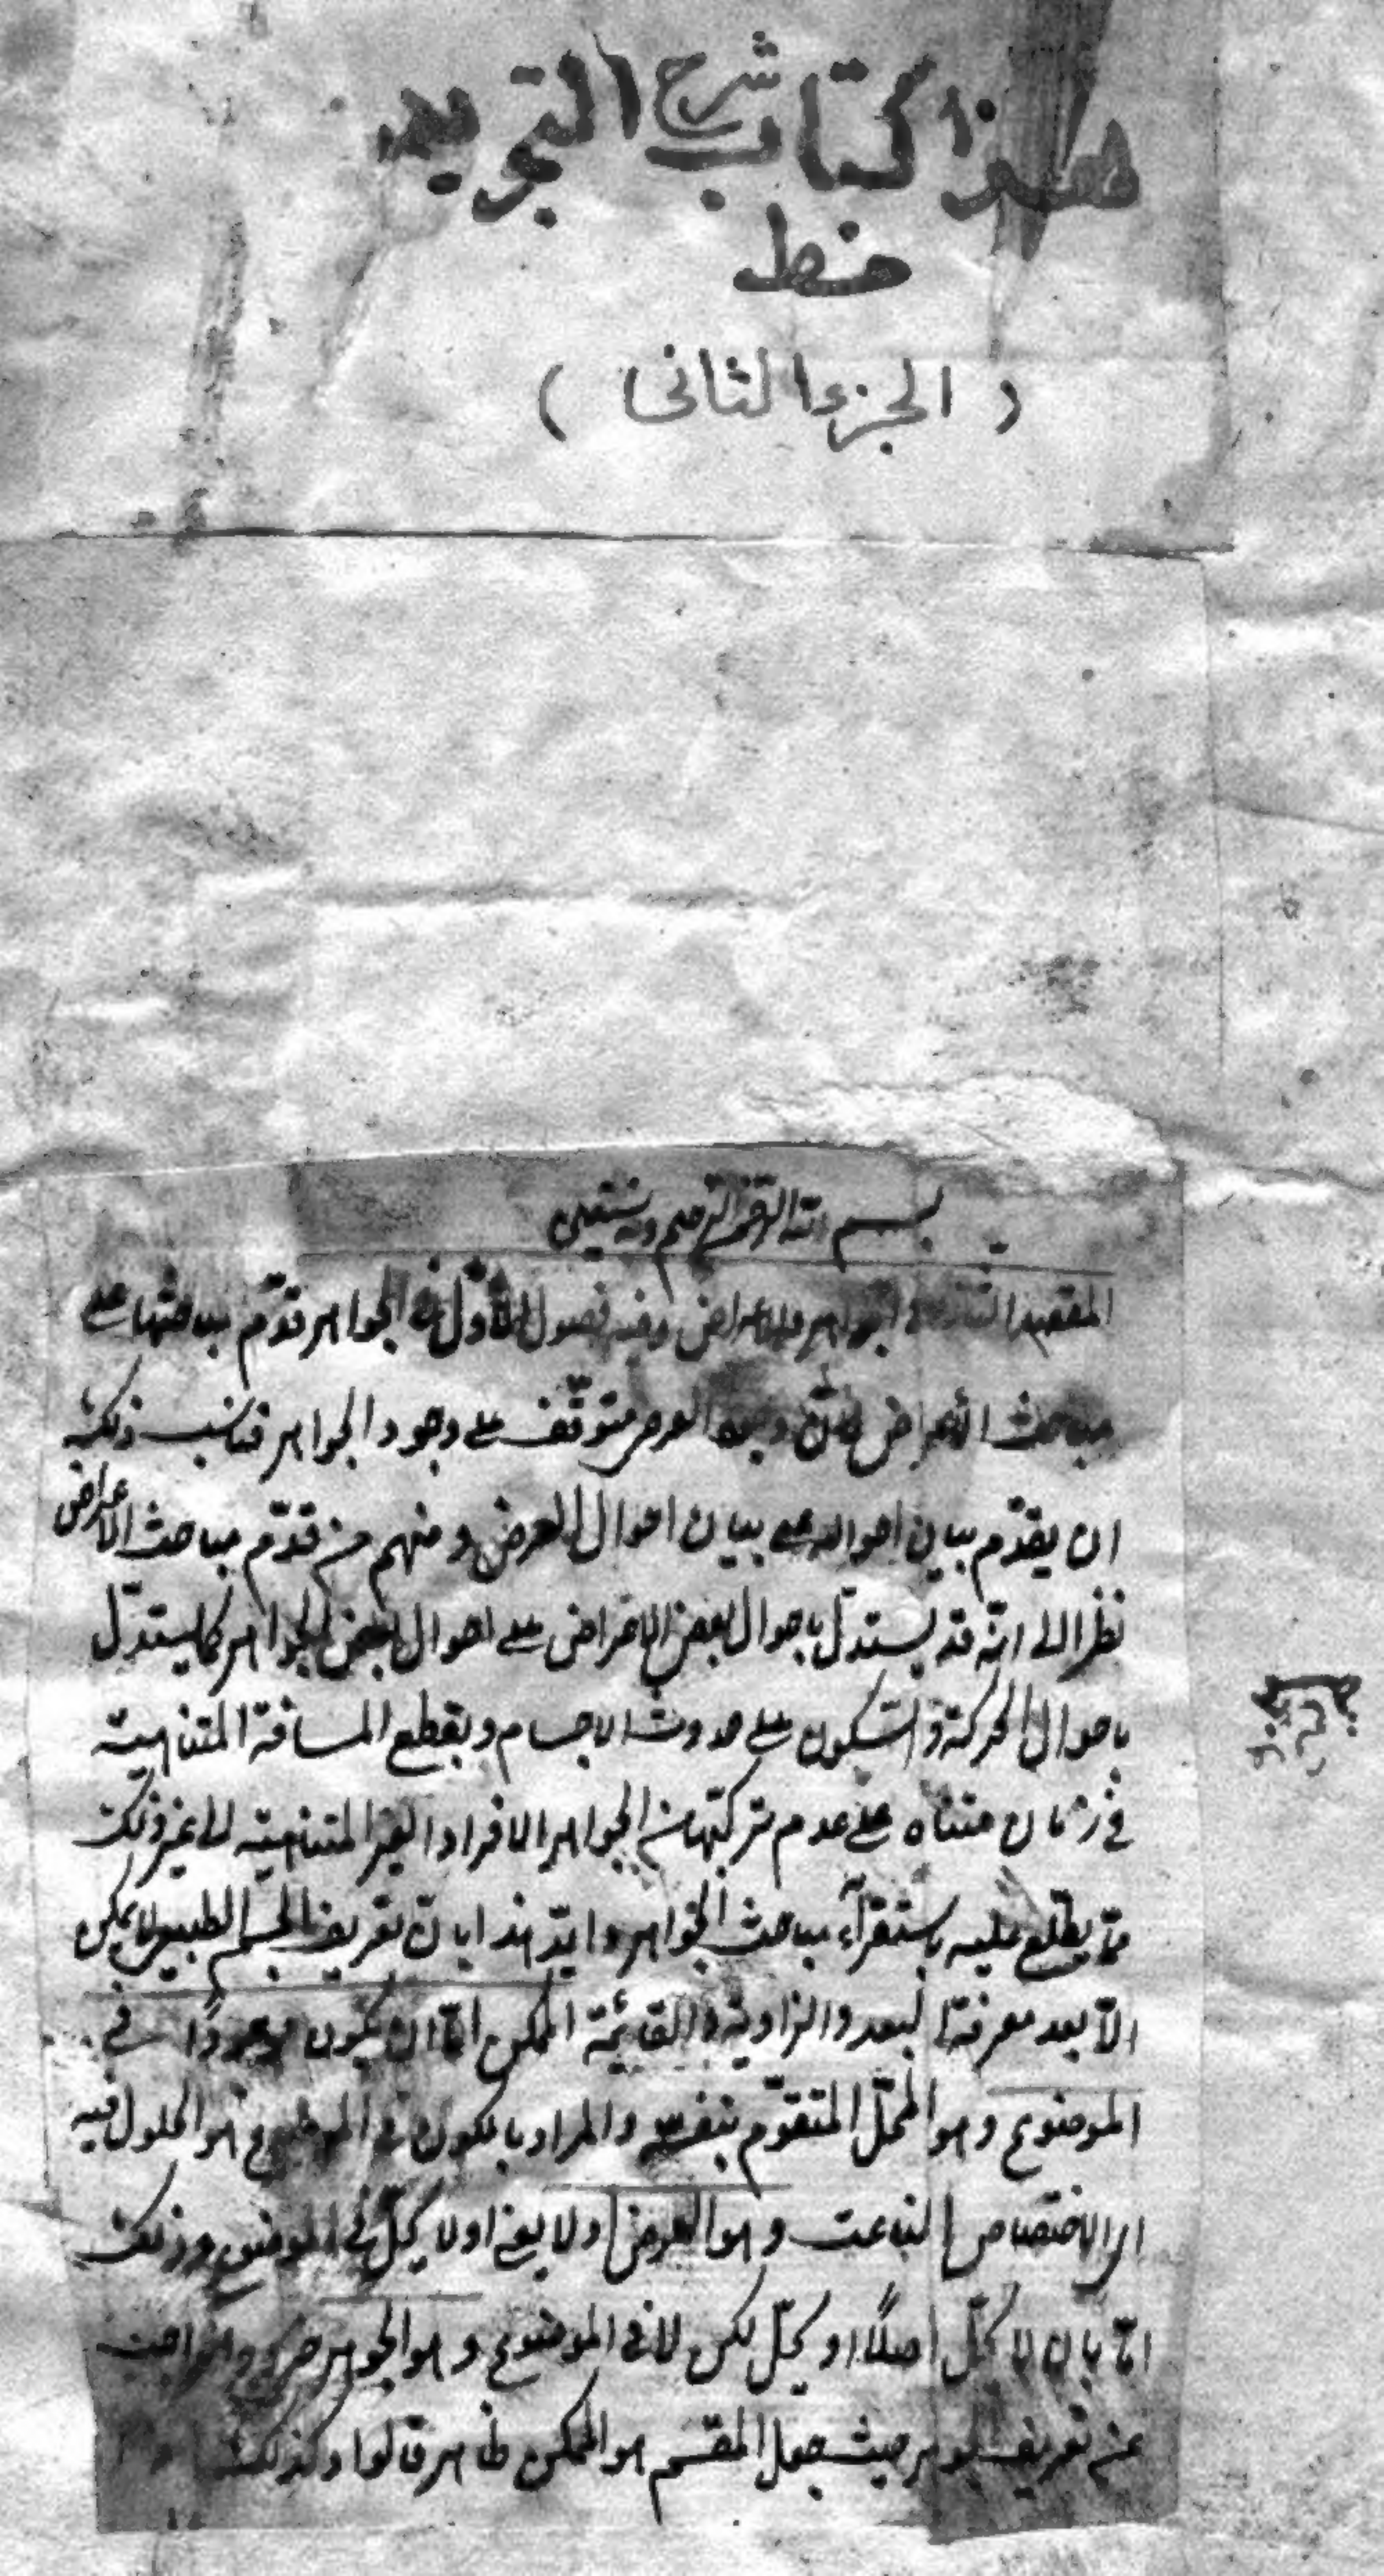 هذا كتاب شرح التجريد
خط
( الجزء الثانى )
بسم الله الرحمن الرحيم وبه نستعين
المقصد الثانى فى الجواهر والاعراض وفيه فصول الاول فى الجواهر قدّم مباحثها على
مباحث الأعراض لانّ وجود العرض متوقّف على وجود الجواهر فناسب ذلك
ان يقدّم بيان احواله على بيان احوال العرض ومنهم من قدّم مباحث الاعراض
نظرا الى انّه قد يستدلّ باحوال بعض الاعراض على احوال بعض الجواهر كما يستدلّ
باحوال الحركة والسّكون على حدوث الاجسام وبقطع المسافة المتناهية
فى زمان متناه على عدم تركّبها من الجواهر الافراد الغير المتناهية الى غير ذلك
ممّا يطّلع عليه باستقرآء مباحث الجواهر وايّد هذا بانّ تعريف الجسم الطبيعى لا يمكن
الاّ بعد معرفة البعد والزاوية القائمة الممكن امّا ان يكون موجودًا فى
الموضوع وهو المحلّ المتقوّم بنفسه والمراد بالكون فى الموضوع هو الحلول فيه
اى الاختصاص الناعت وهو العرض اولا يعنى اولا يحلّ فى الموضوع وذلك
امّا بان لا يحلّ اصلًا او يحلّ لكن لا فى الموضوع وهو الجوهر خروج الواجب
عن تعريف الجوهر حيث جعل المقسم هو الممكن ظاهر قالوا وكذلك